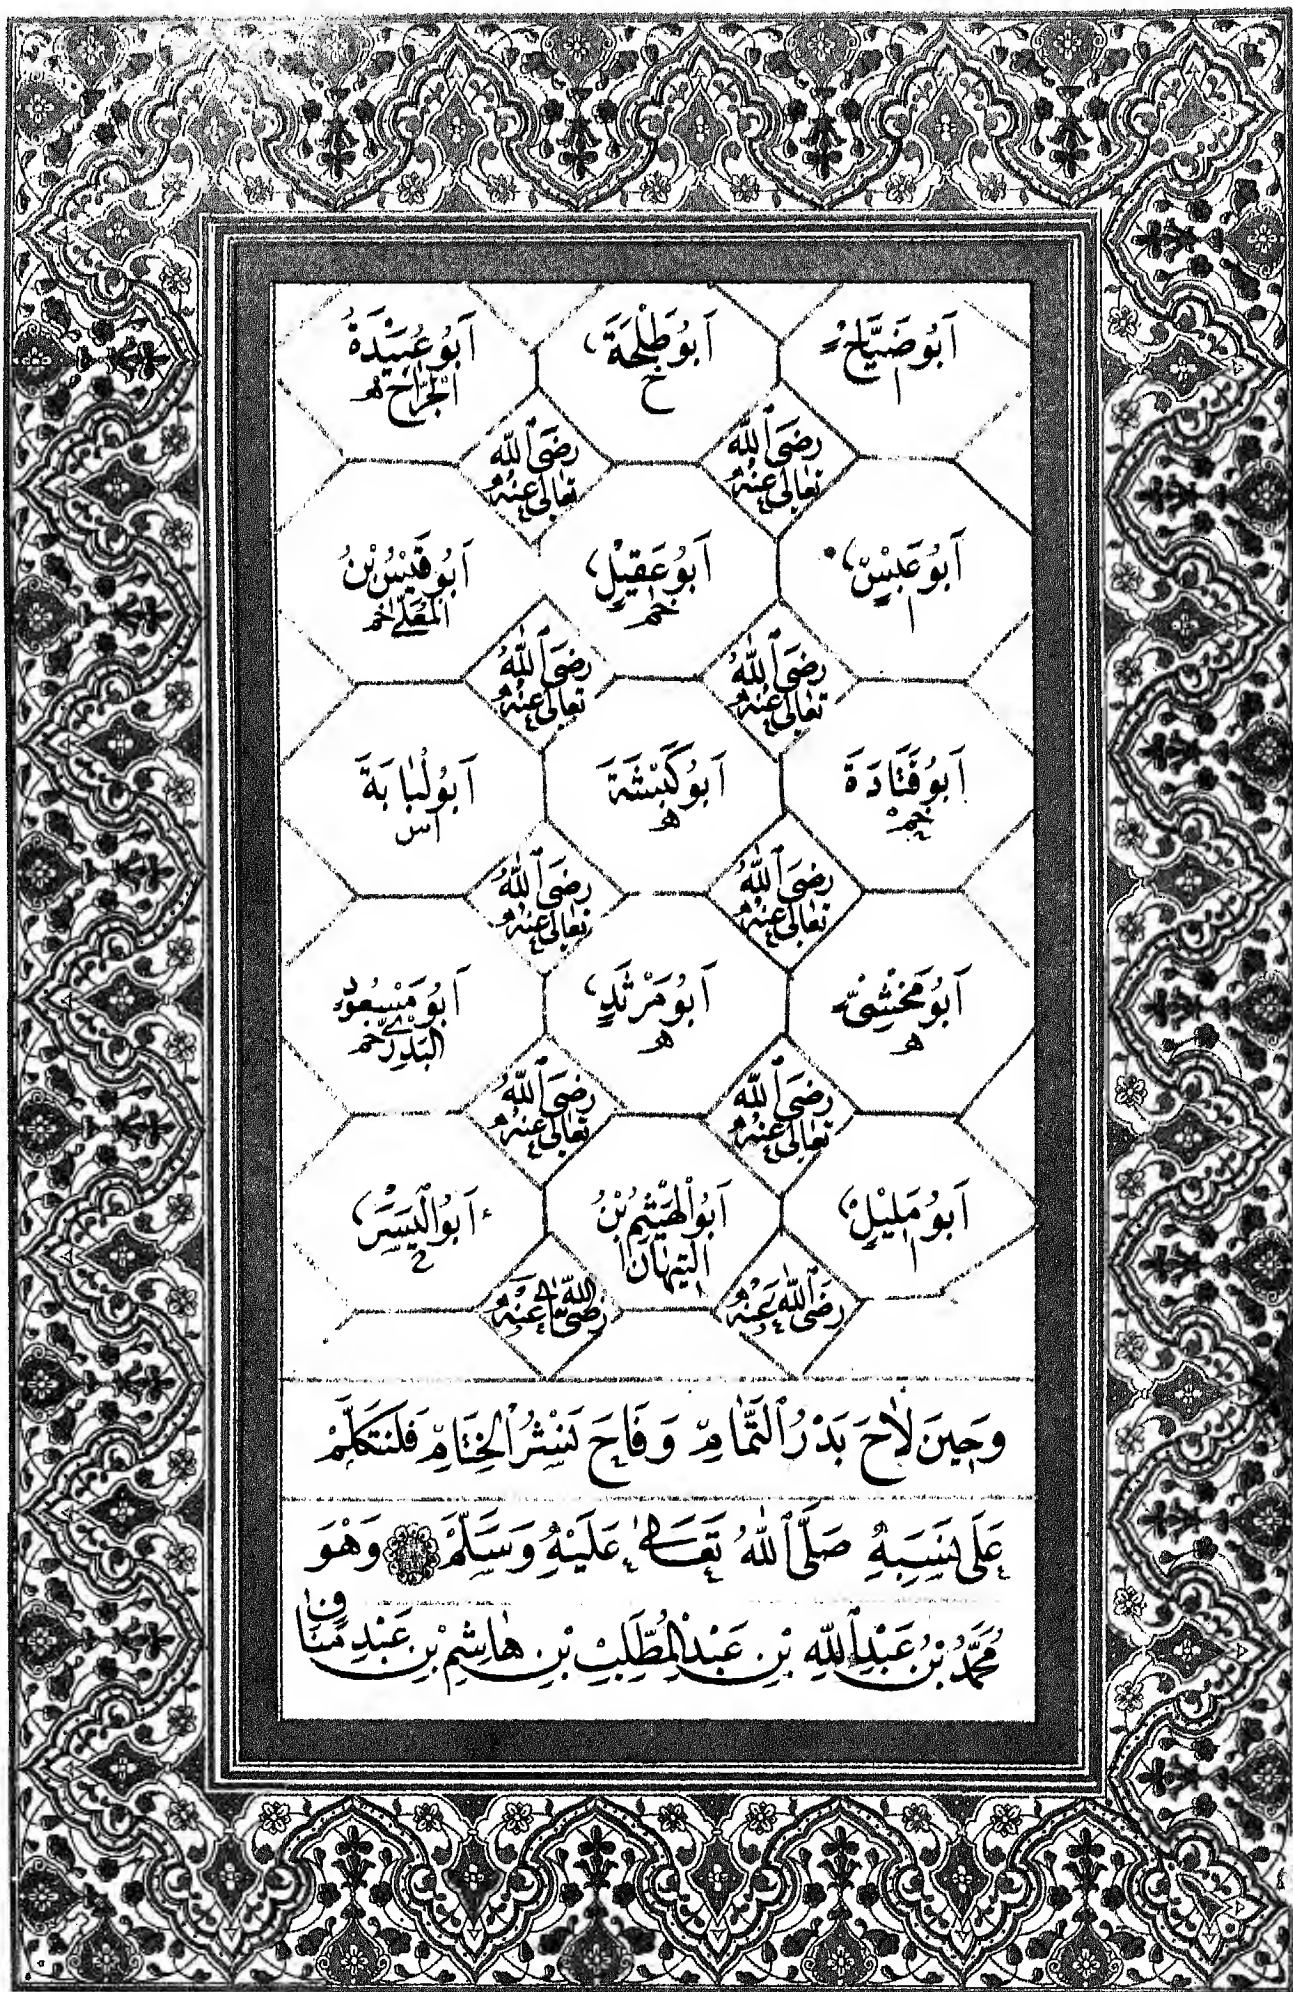 اَبُو ضَيَّاحٍ
ا
اَبُو طَلْحَةَ
خ
اَبُو عُبَيْدَةُ
الْجَرَّاحِ هـ
رَضِيَ اللّٰهُ
تَعَالٰى عَنْهُ
رَضِيَ اللّٰهُ
تَعَالٰى عَنْهُ
اَبُو عَبْسٍ
ا
اَبُو عَقِيْلٍ
اَبُو قَيْسِ بْنُ
الْمُعَلّٰى
رَضِيَ اللّٰهُ
تَعَالٰى عَنْهُ
رَضِيَ اللّٰهُ
تَعَالٰى عَنْهُ
اَبُو قَتَادَةَ
اَبُو كَبْشَةَ
هـ
اَبُو لُبَابَةَ
اس
رَضِيَ اللّٰهُ
تَعَالٰى عَنْهُ
رَضِيَ اللّٰهُ
تَعَالٰى عَنْهُ
اَبُو مَخْشِيٍّ
هـ
اَبُو مَرْثَدٍ
هـ
اَبُو مَسْعُودٍ
الْبَدْرِيّ
رَضِيَ اللّٰهُ
تَعَالٰى عَنْهُ
رَضِيَ اللّٰهُ
تَعَالٰى عَنْهُ
اَبُو مَلِيْلٍ
ا
اَبُو الْهَيْثَمِ بْنُ
التَّيِّهَانِ ا
اَبُو الْيَسَرِ
رَضِيَ اللّٰهُ عَنْهُ
رَضِيَ اللّٰهُ تَعَالٰى عَنْهُ
وَحِينَ لَاحَ بَدْرُ التَّمَامِ وَفَاحَ نَشْرُ الْخِتَامِ فَلْنَتَكَلَّمْ
عَلٰى نَسَبِهِ صَلَّى اللّٰهُ تَعَالٰى عَلَيْهِ وَسَلَّمَ وَهُوَ
مُحَمَّدُ بْنُ عَبْدِ اللّٰهِ بْنِ عَبْدِ الْمُطَّلِبِ بْنِ هَاشِمِ بْنِ عَبْدِ مَنَافِ